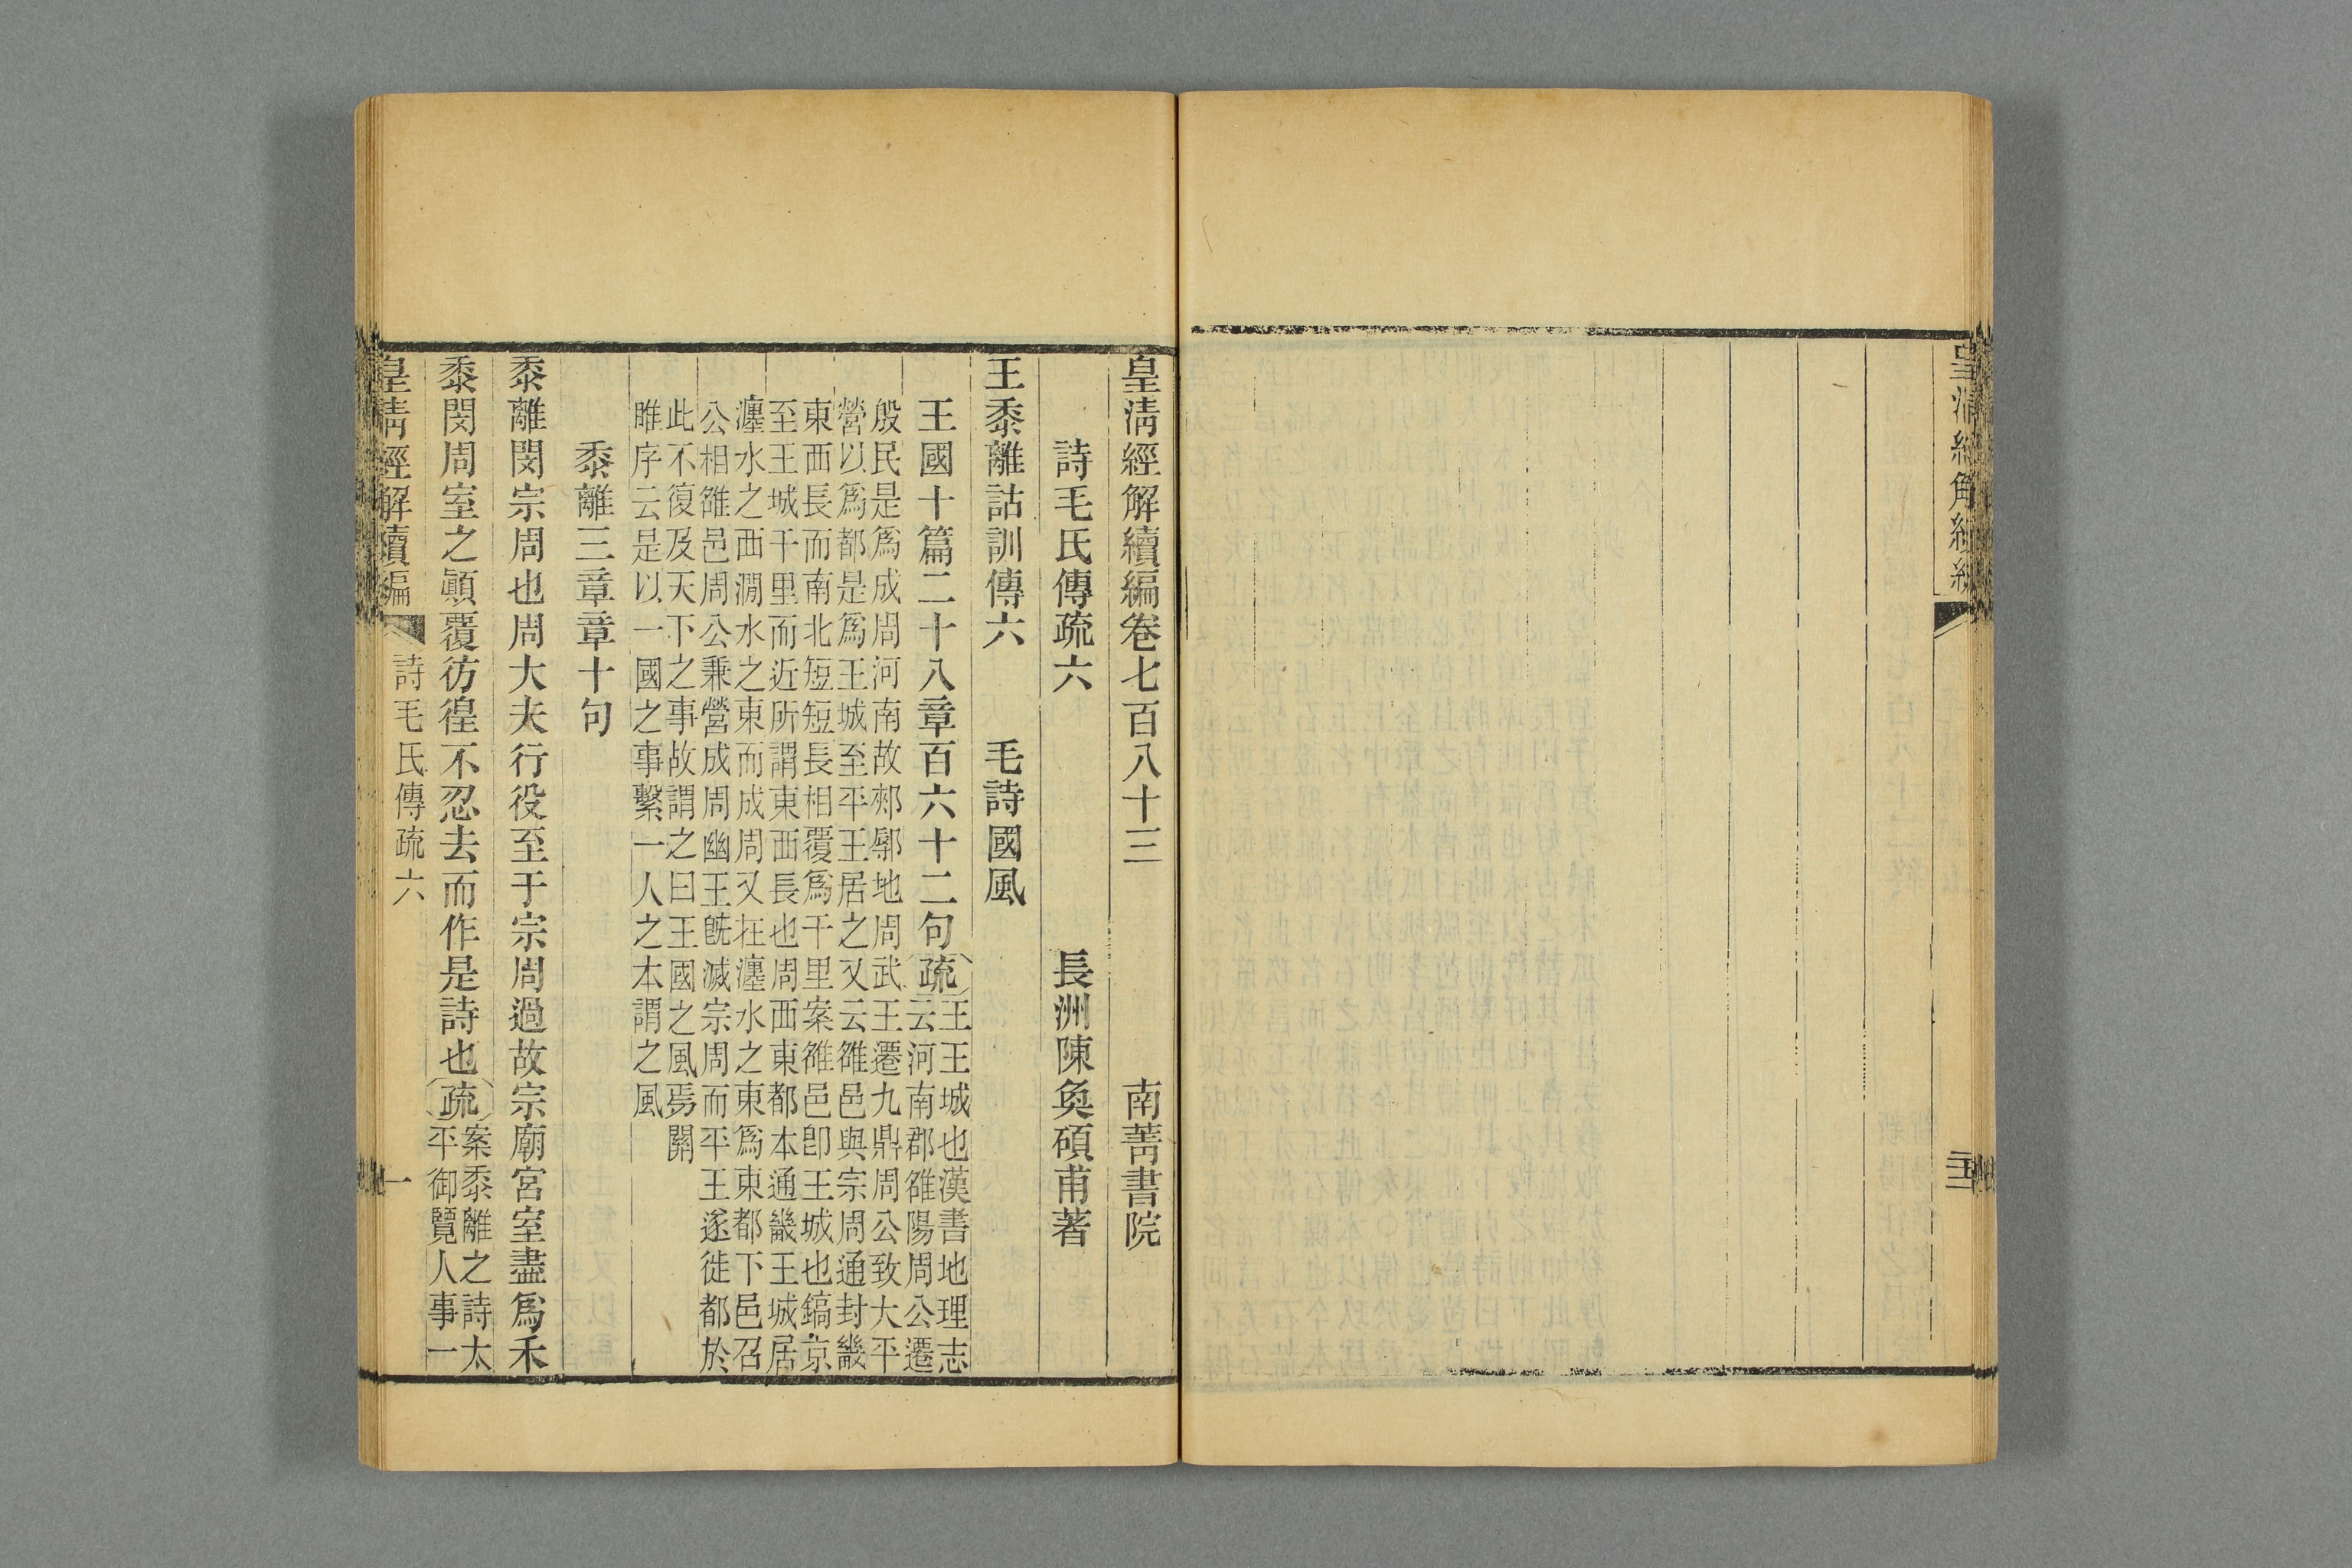 皇清經解續編卷七百八十三 南菁書院
詩毛氏傳疏六 長洲陳奐碩甫著
王黍離詁訓傳六 毛詩國風
王國十篇二十八章百六十二句疏
王王城也漢書地理志
云河南郡雒陽周公遷
殷民是爲成周河南故郟鄏地周武王遷九鼎周公致大平
營以爲都是爲王城至平王居之又云雒邑與宗周通封畿
東西長而南北短短長相覆爲千里案雒邑卽王城也鎬京
至王城千里而近所謂東西長也周西東都本通畿王城居
瀍水之西澗水之東而成周又在瀍水之東爲東都下邑召
公相雒邑周公兼營成周幽王旣滅宗周而平王遂徙都於
此不復及天下之事故謂之曰王國之風焉關
雎序云是以一國之事繫一人之本謂之風
黍離三章章十句
黍離閔宗周也周大夫行役至于宗周過故宗廟宮室盡爲禾
黍閔周室之顚覆彷徨不忍去而作是詩也疏
案黍離之詩太
平御覽人事一
皇清經解續編 詩毛氏傳疏六 一